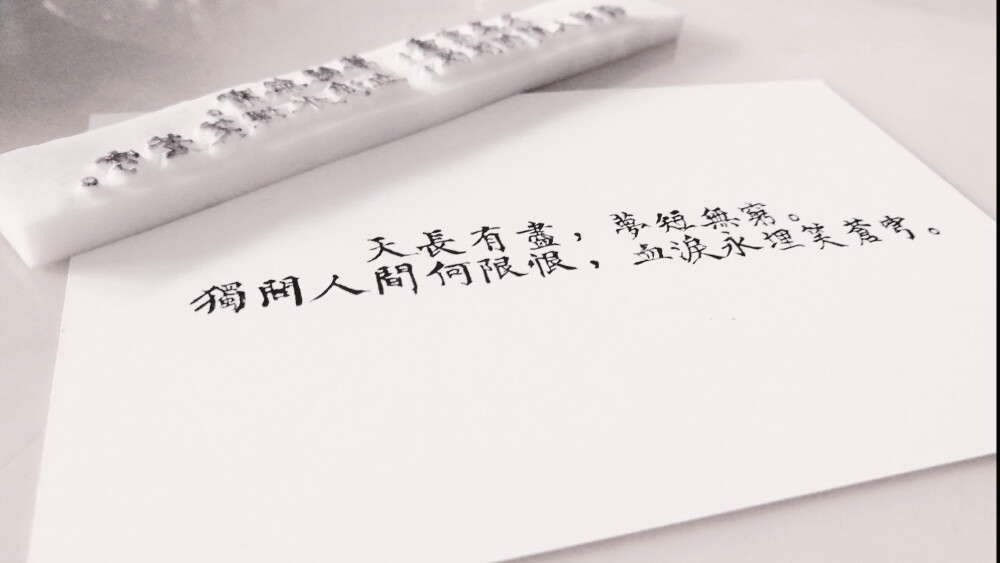 天長有盡，夢短無窮。
獨問人間何限恨，血淚永埋笑蒼穹。